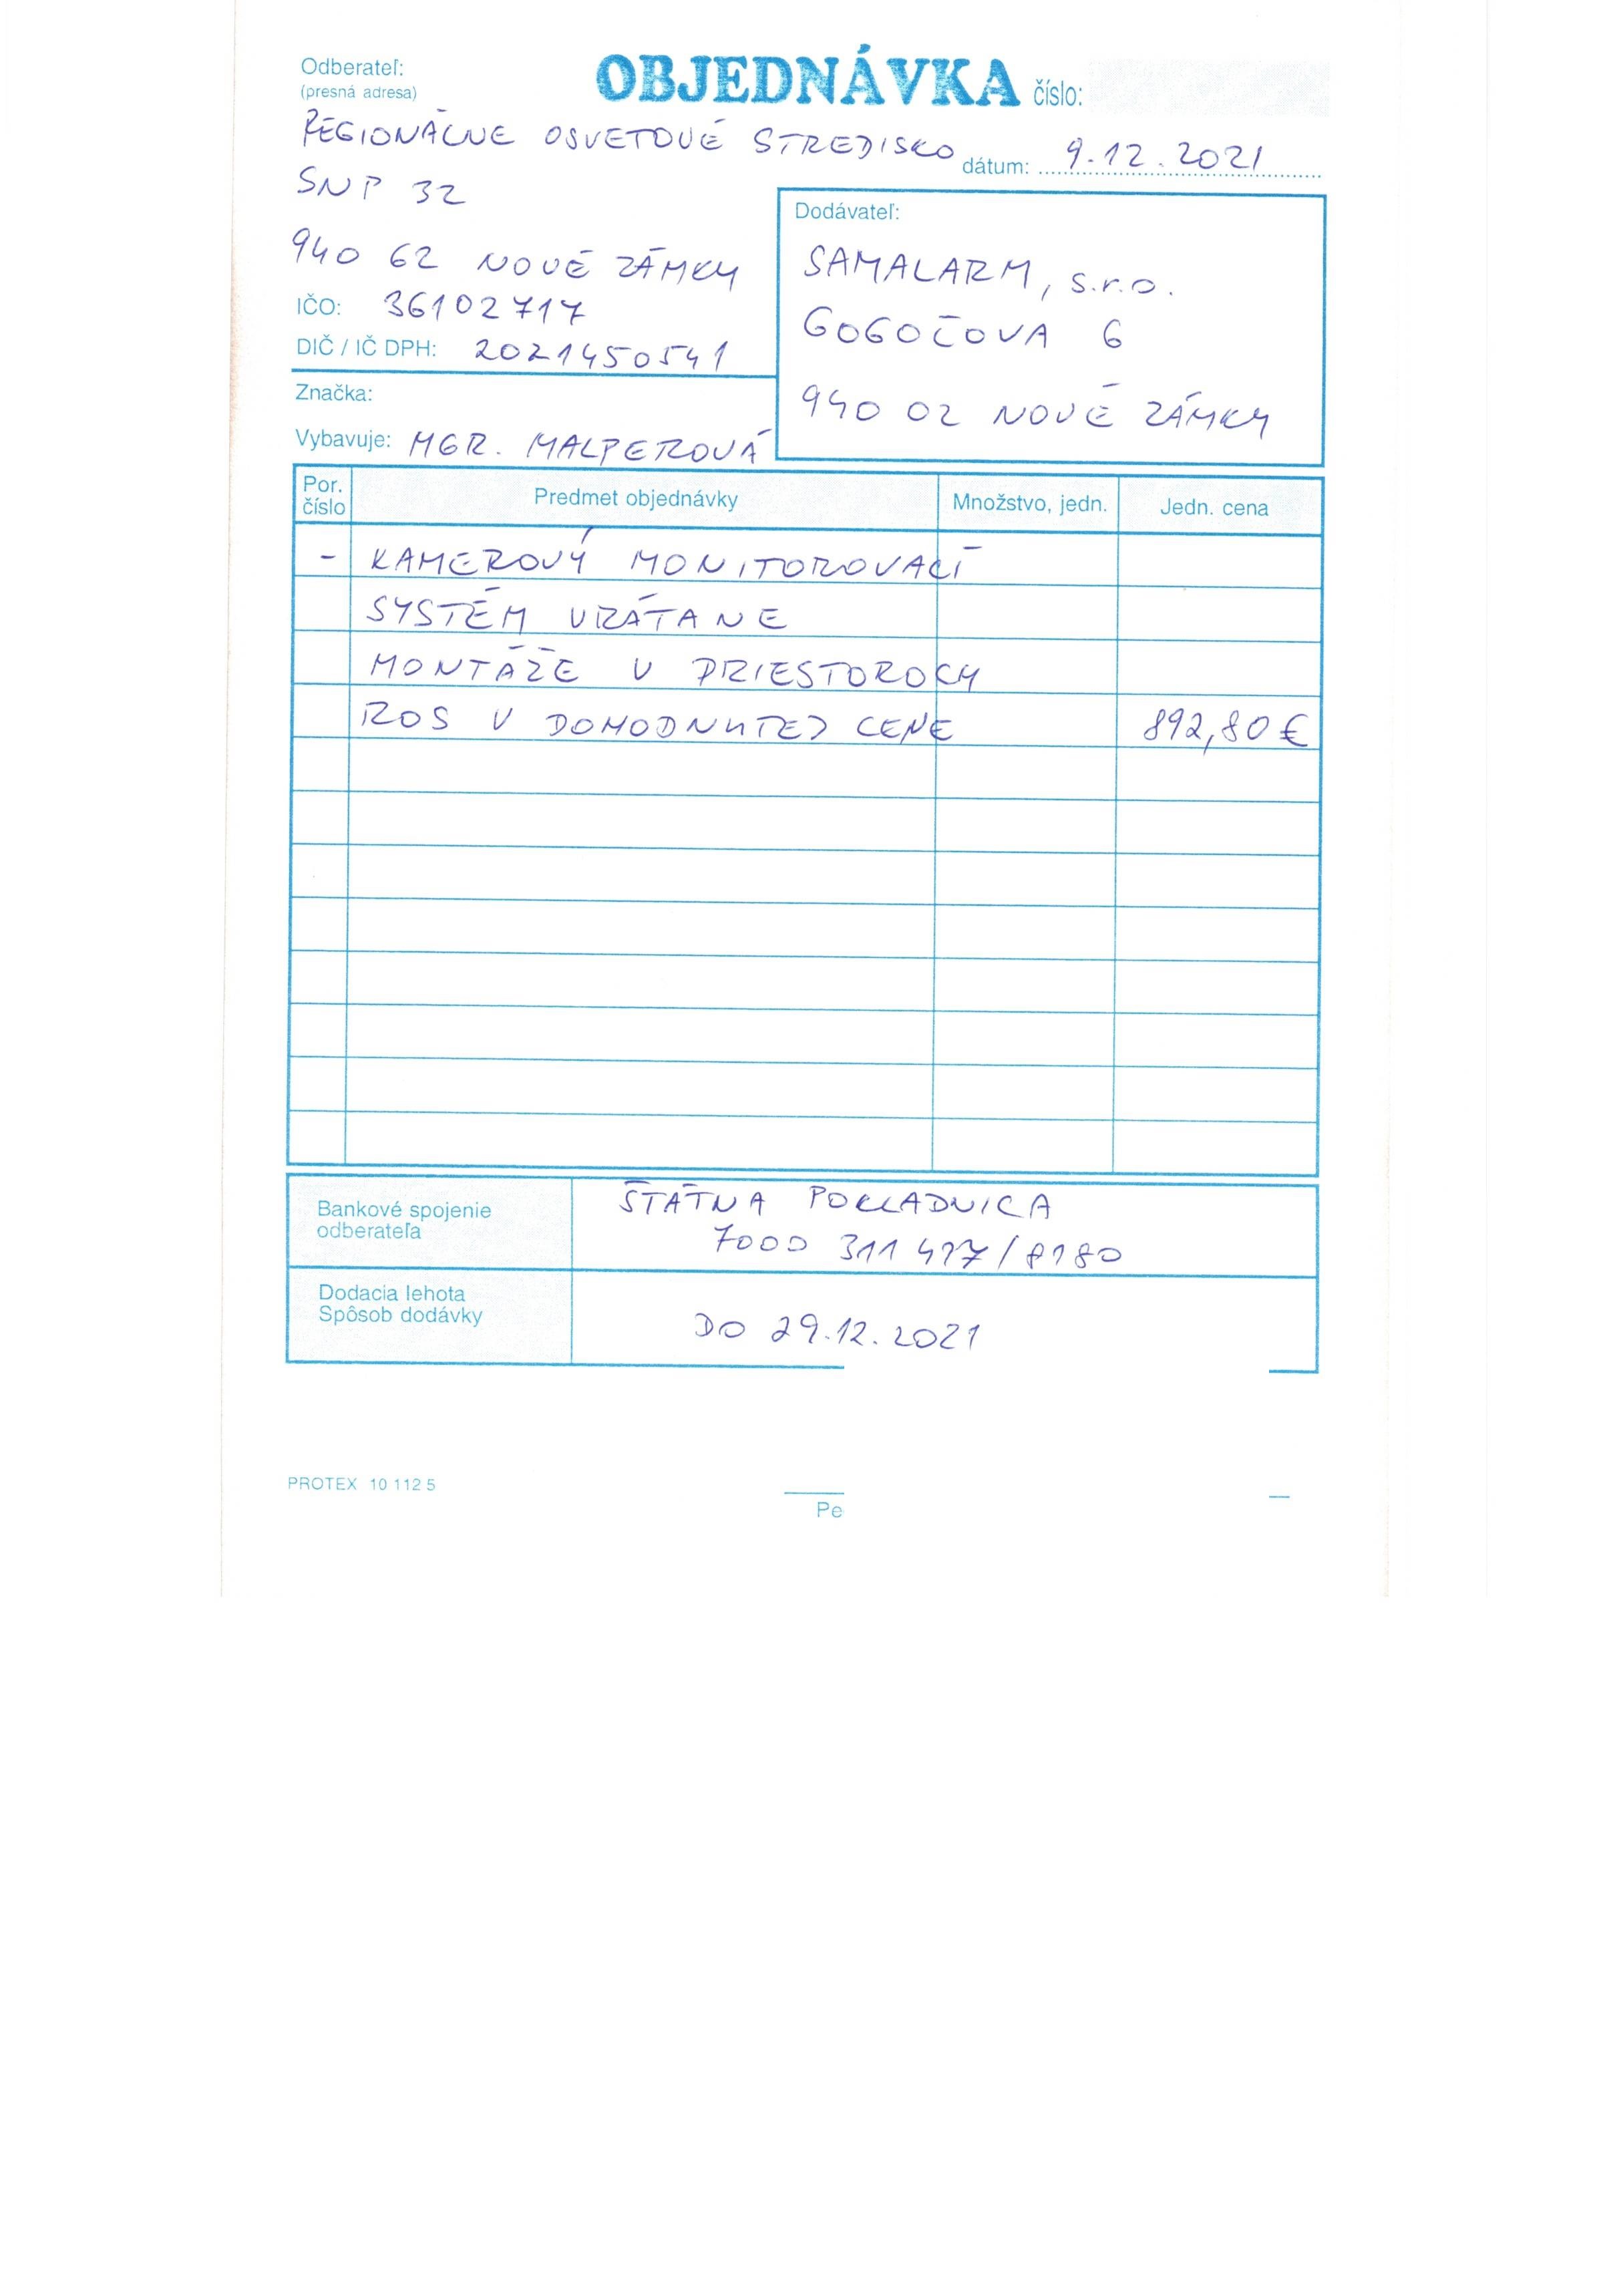 Odberateľ:
(presná adresa)
OBJEDNÁVKA číslo:
REGIONÁLNE OSVETOVÉ STREDISKO
dátum: 9.12.2021
SNP 32
940 62 NOVÉ ZÁMKY
IČO: 36102717
DIČ / IČ DPH: 2021450541
Značka:
Vybavuje: MGR. MALPEROVÁ
Dodávateľ:
SAMALARM, s.r.o.
GOGOČOVA 6
940 02 NOVÉ ZÁMKY
Por. číslo Predmet objednávky Množstvo, jedn. Jedn. cena
- KAMEROVÝ MONITOROVACÍ
SYSTÉM VRÁTANE
MONTÁŽE V PRIESTOROCH
ROS V DOHODNUTEJ CENE 892,80 €
Bankové spojenie
odberateľa
ŠTÁTNA POKLADNICA
7000 311 477/8180
Dodacia lehota
Spôsob dodávky
DO 29.12.2021
PROTEX 10 112 5
Pe